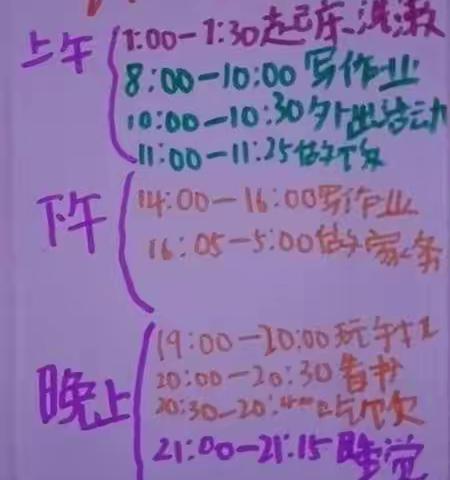 上午
7:00-7:30起床、洗漱
8:00-10:00写作业
10:00-10:30外出活动
11:00-11:25做饭
下午
14:00-16:00写作业
16:05-5:00做家务
晚上
19:00-20:00玩手机
20:00-20:30看书
20:30-20:40吃饭
21:00-21:15睡觉